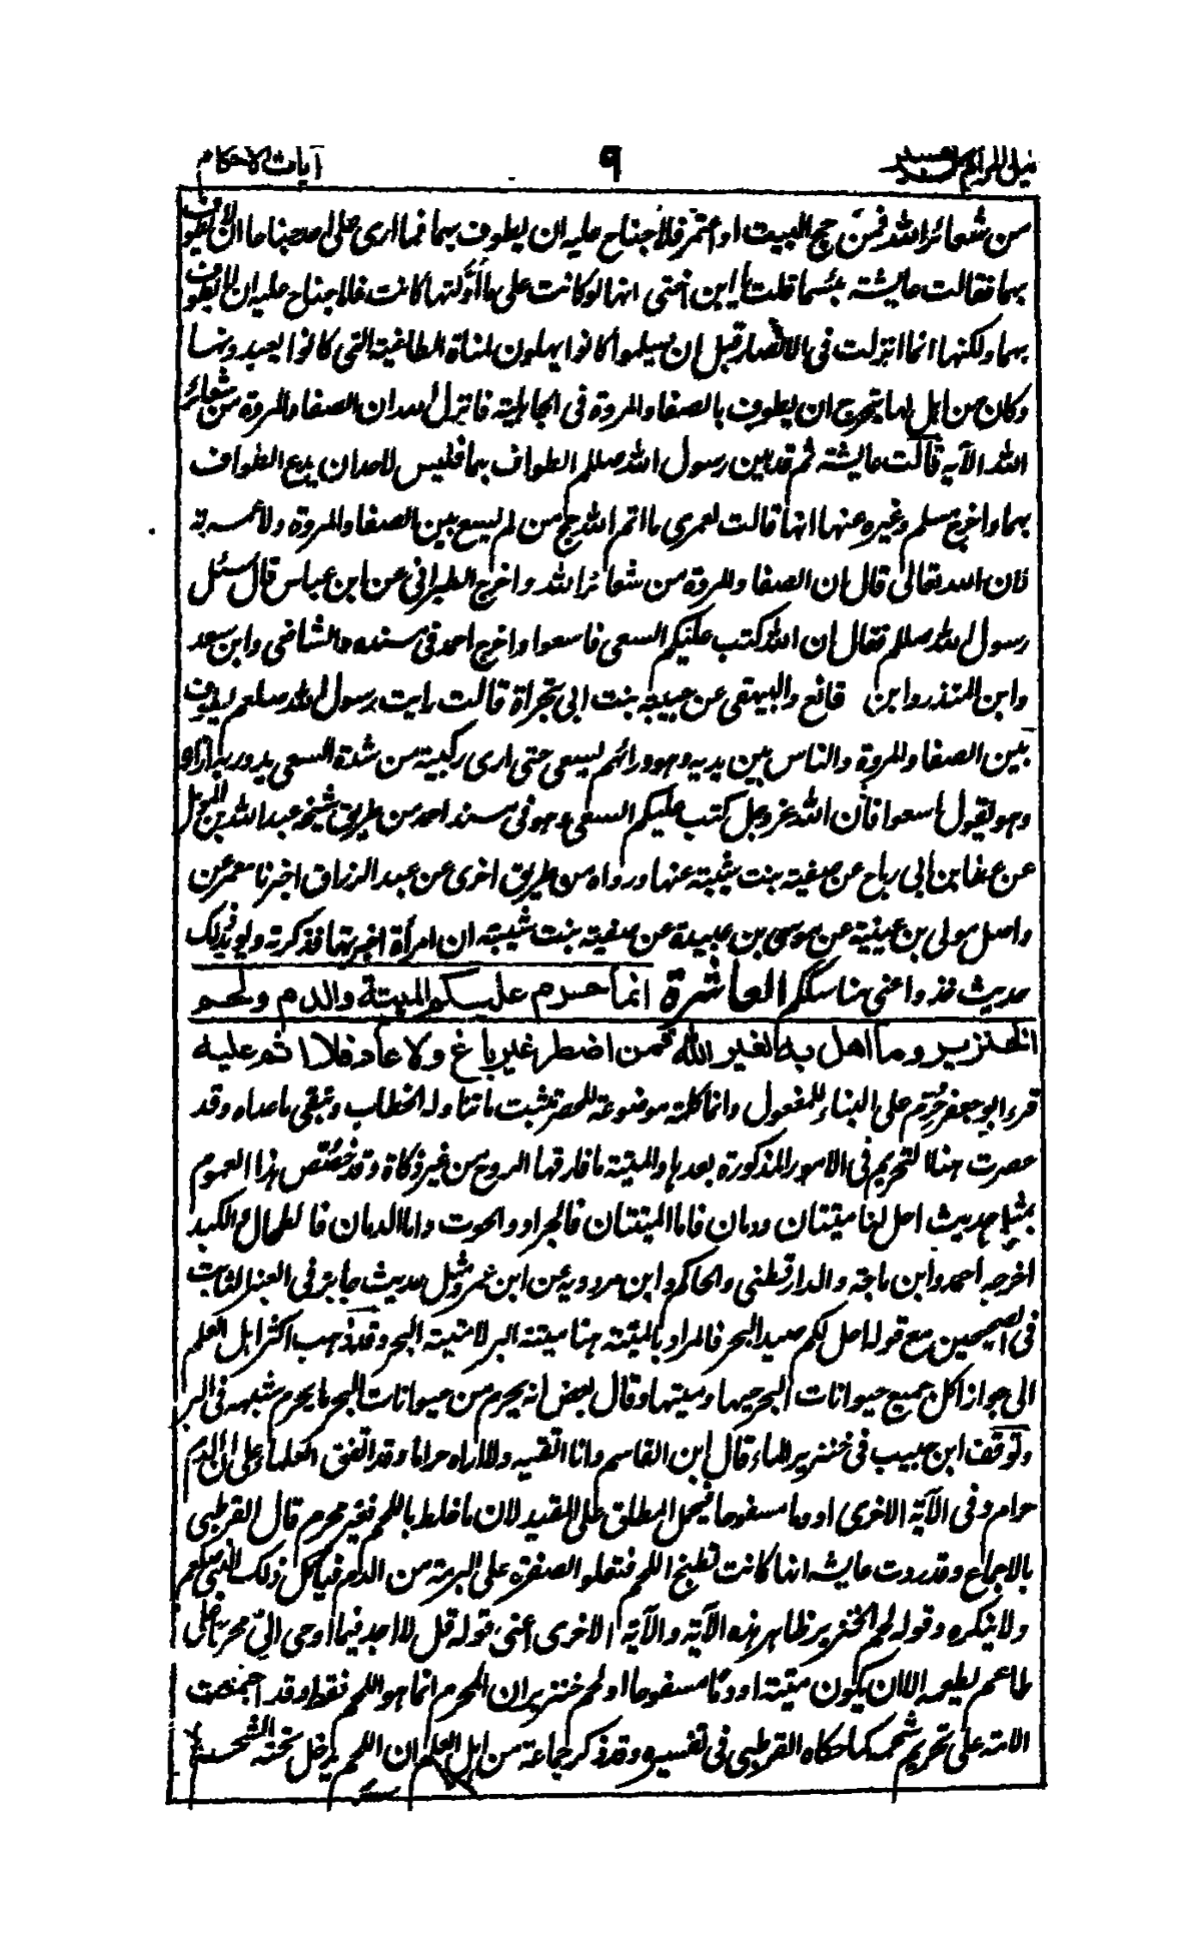 نيل المرام من تفسير ٩ آيات الاحكام
من شعائر الله فمن حج البيت او اعتمر فلا جناح عليه ان يطوف بهما فما ارى على احد جناحا ان لا يطوف
بهما فقالت عايشة بئسما قلت يا ابن اختى انها لو كانت على ما أوّلتها كانت فلا جناح عليه ان لا يطوف
بهما ولكنها انما انزلت فى الانصار قبل ان يسلموا كانوا يهلون لمناة الطاغية التى كانوا يعبدونها
وكان من اهل لها يتحرج ان يطوف بالصفا والمروة فى الجاهلية فانزل الله ان الصفا والمروة من شعائر
الله الآية قالت عايشة ثم قد بين رسول الله صللم الطواف بهما فليس لاحد ان يدع الطواف
بهما واخرج مسلم وغيره عنها انها قالت لعمرى ما اتم الله حج من لم يسع بين الصفا والمروة ولا عمرته
لان الله تعالى قال ان الصفا والمروة من شعائر الله واخرج الطبرانى عن ابن عباس قال سئل
رسول الله صللم فقال ان الله كتب عليكم السعى فاسعوا واخرج احمد فى مسنده والشافعى وابن سعد
وابن المنذر وابن قانع والبيهقى عن حبيبة بنت ابى تجراة قالت رايت رسول الله صلعم يطوف
بين الصفا والمروة والناس بين يديه وهو ورائهم يسعى حتى ارى ركبتيه من شدة السعى يدور به ازاره
وهو يقول اسعوا فأن الله عز وجل كتب عليكم السعى وهو فى مسند احمد من طريق شيخه عبدالله بن المؤمل
عن عطا بن ابى رباح عن صفية بنت شيبة عنها ورواه من طريق اخرى عن عبد الرزاق اخبرنا معمر عن
واصل مولى بن عيينة عن موسى بن عبيدة عن صفية بنت شيبة ان امرأة اخبرتها فذكرته ويؤيد ذلك
حديث خذوا عنى مناسككم العاشرة انما حرم عليكم الميتة والدم ولحم
الخنزير وما اهل به لغير الله فمن اضطر غير باغ ولا عاد فلا اثم عليه
قرء ابو جعفر حُرّم على البناء للمفعول وانما كلمة موضوعة للحصر تثبت ما تناوله الخطاب وتنفى ما عداه وقد
حصرت هنا التحريم فى الامور المذكورة بعدها والميتة ما فارقها الروح من غير ذكاة وقد خُصّص هذا العموم
بمثل حديث احل لنا ميتتان ودمان فاما الميتتان فالجراد والحوت واما الدمان فالطحال والكبد
اخرجه احمد وابن ماجة والدارقطنى والحاكم وابن مردوية عن ابن عمر ومثل حديث جابر فى العنبر الثابت
فى الصحيحين مع قوله احل لكم صيد البحر فالمراد بالميتة هنا ميتة البر لا ميتة البحر وقد ذهب اكثر اهل العلم
الى جواز اكل جميع حيوانات البحر حيها وميتها وقال بعض انه يحرم من حيوانات البحر ما يحرم شبهه فى البر
وتوقف ابن حبيب فى خنزير الماء قال ابن القاسم وانا اتقيه ولا اراه حراما وقد اتفق العلماء على ان الدم
حرام وفى الآية الاخرى او دما مسفوحا فيحمل المطلق على المقيد لان ما خلط باللحم فغير محرم قال القرطبى
بالاجماع وقد روت عايشة انها كانت تطبخ اللحم فتعلو الصفرة على البرمة من الدم فيأكل ذلك النبى صلعم
ولا ينكره وقوله لحم الخنزير ظاهر هذه الآية والآية الاخرى اعنى قوله قل لا اجد فيما اوحى الىّ محرما على
طاعم يطعمه الا ان يكون ميتة او دمًا مسفوحا او لحم خنزير ان المحرم انما هو اللحم فقط وقد اجمعت
الامة على تحريم شحمه كما حكاه القرطبى فى تفسيره وقد ذكر جماعة من اهل العلم ان اللحم يدخل تحته الشحم